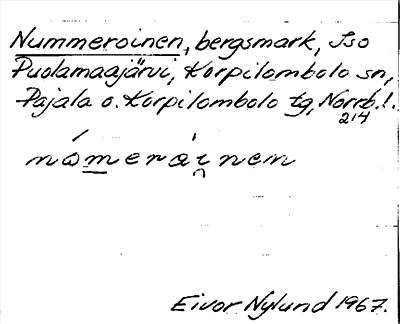 Nummeroinen, bergsmark, Iso
Puolamaajärvi, Korpilombolo sn,
Pajala o. Korpilombolo tg, Norrb. l.
214
nómeroi̯nen
Eivor Nylund 1967.